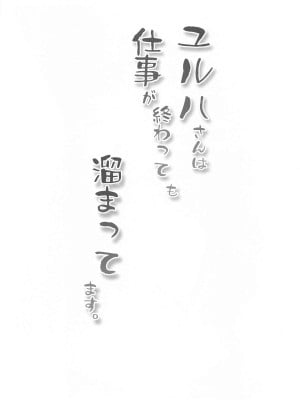 ユルハさんは
仕事が終わっても
溜まって
ます。